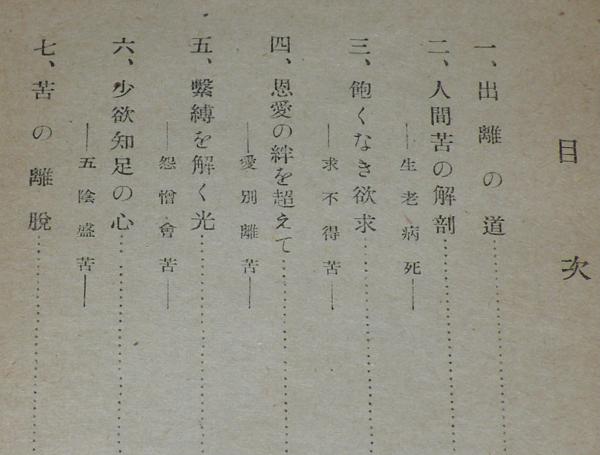 目次
一、出離の道……………………
二、人間苦の解剖……………………
―生老病死―
三、飽くなき欲求……………………
―求不得苦―
四、恩愛の絆を超えて……………………
―愛別離苦―
五、繫縛を解く光……………………
―怨憎會苦―
六、少欲知足の心……………………
―五陰盛苦―
七、苦の離脫……………………